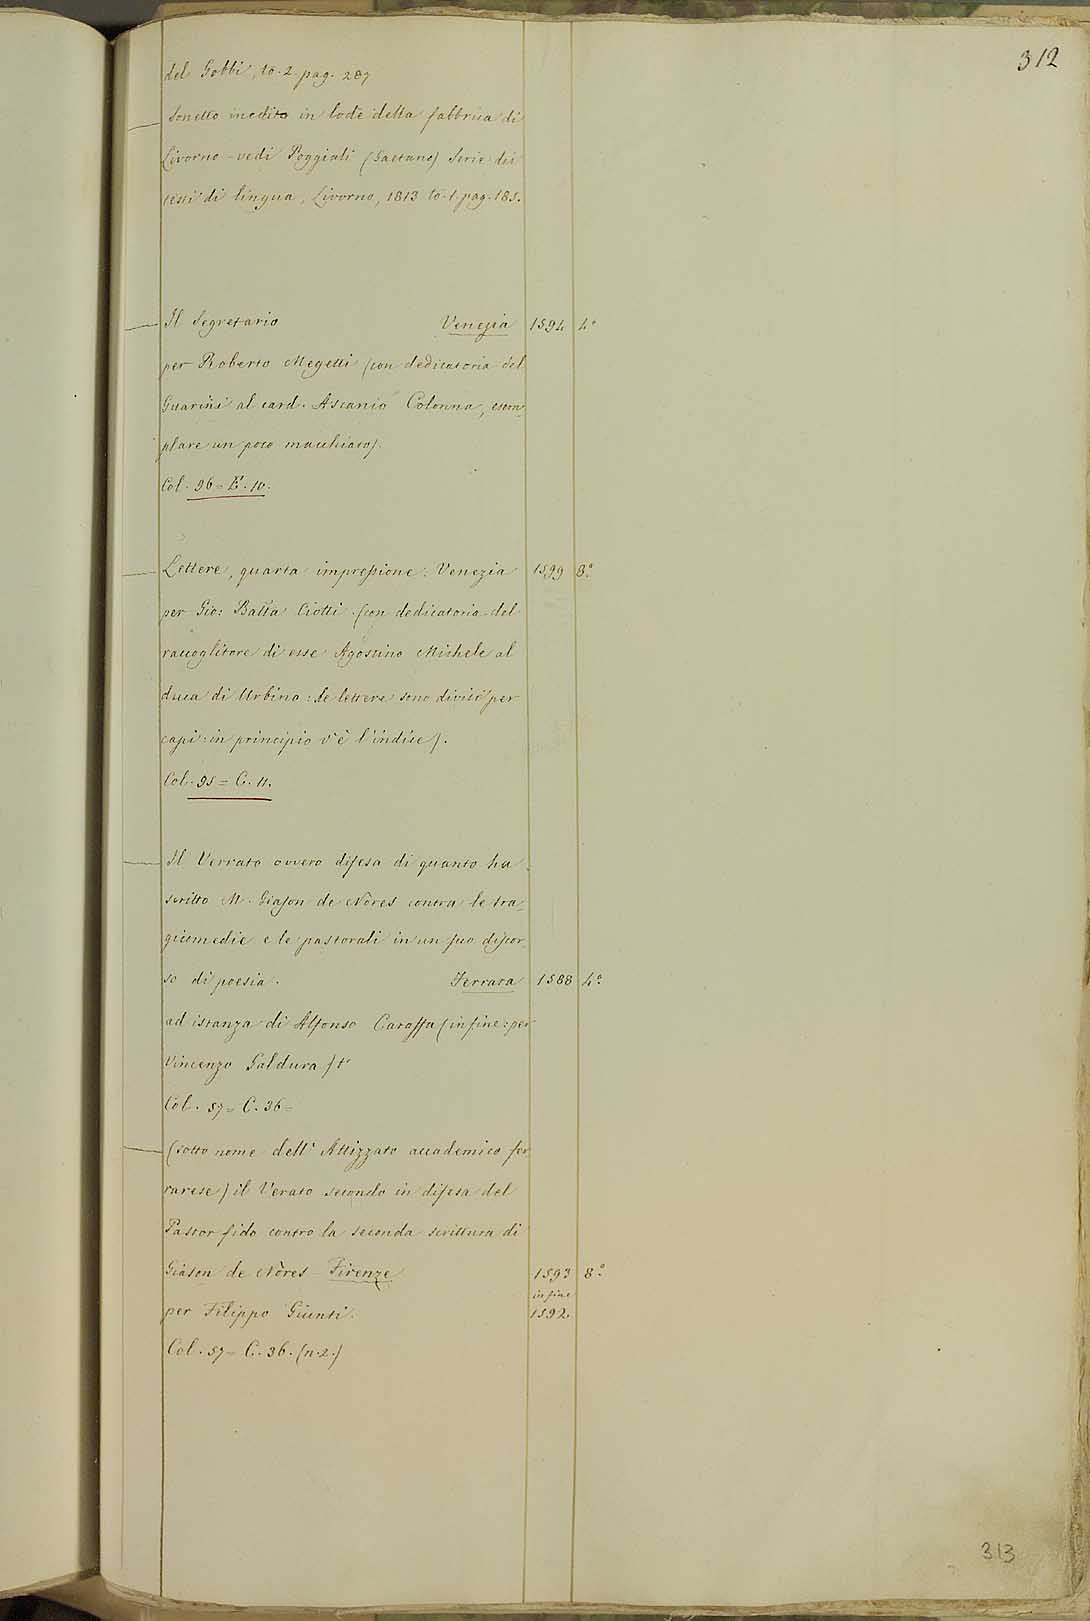 312
del Gobbi, to. 2. pag. 287
Sonetto inedito in lode della fabbrica di
Livorno - vedi Poggiali (Gaetano) Serie dei
testi di lingua, Livorno, 1813 to. 1. pag. 185.
Il Segretario Venezia 1594 4.°
per Roberto Megetti (con dedicatoria del
Guarini al card. Ascanio Colonna, esem-
plare un poco macchiato).
Col. 96 = E. 10.
Lettere, quarta impressione: Venezia 1599 8.°
per Gio: Batta Ciotti. (con dedicatoria del
raccoglitore di esse Agostino Michele al
duca di Urbino: le lettere sono divise per
capi: in principio v'è l'indice).
Col. 95 = C. 11.
Il Verrato ovvero difesa di quanto ha
scritto M. Giason de Nores contra le tra-
gicomedie e le pastorali in un suo discor-
so di poesia. Ferrara 1588 4.°
ad istanza di Alfonso Caraffa (in fine: per
Vincenzo Galdura)
Col. 57 = C. 36 =
(sotto nome dell' Attizzato accademico fer
rarese) il Verato secondo in difesa del
Pastor fido contro la seconda scrittura di
Giason de Nores - Firenze 1593 8.°
in fine
per Filippo Giunti. 1592.
Col. 57 = C. 36. (n. 2.)
313